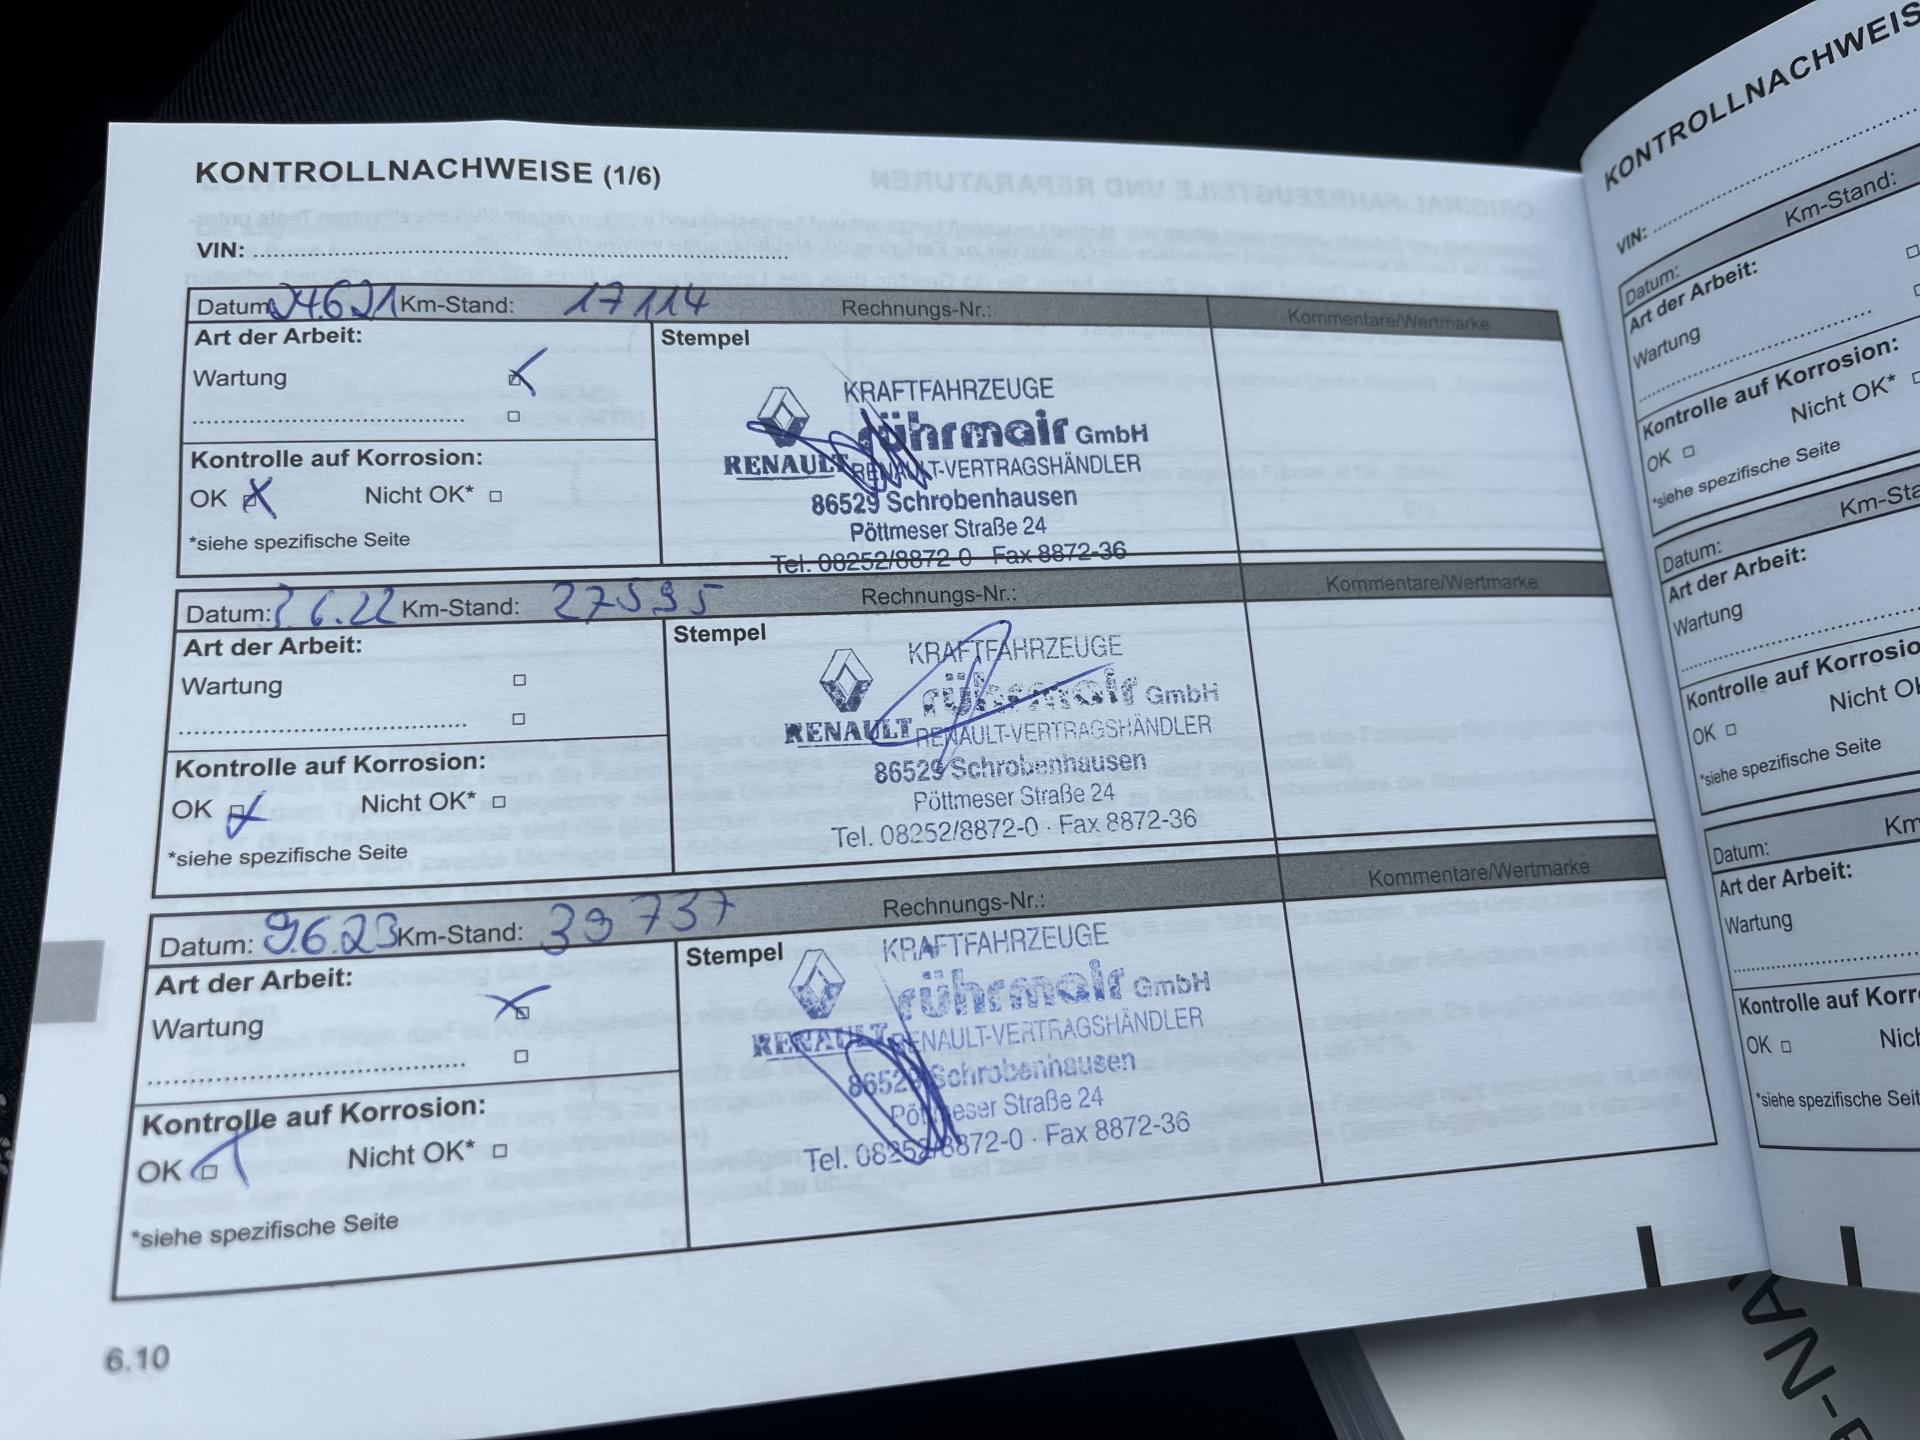 KONTROLLNACHWEISE (1/6)
VIN:
Datum: 24.6.21 Km-Stand: 17114 Rechnungs-Nr.: Kommentare/Wertmarke
Art der Arbeit:
Wartung
Kontrolle auf Korrosion:
OK Nicht OK*
*siehe spezifische Seite
Stempel
KRAFTFAHRZEUGE
rührmair GmbH
RENAULT RENAULT-VERTRAGSHÄNDLER
86529 Schrobenhausen
Pöttmeser Straße 24
Tel. 08252/8872-0 · Fax 8872-36
Datum: 6.22 Km-Stand: 27595 Rechnungs-Nr.: Kommentare/Wertmarke
Art der Arbeit:
Wartung
Kontrolle auf Korrosion:
OK Nicht OK*
*siehe spezifische Seite
Stempel
KRAFTFAHRZEUGE
rührmair GmbH
RENAULT RENAULT-VERTRAGSHÄNDLER
86529 Schrobenhausen
Pöttmeser Straße 24
Tel. 08252/8872-0 · Fax 8872-36
Datum: 9.6.23 Km-Stand: 39737 Rechnungs-Nr.: Kommentare/Wertmarke
Art der Arbeit:
Wartung
Kontrolle auf Korrosion:
OK Nicht OK*
*siehe spezifische Seite
Stempel
KRAFTFAHRZEUGE
rührmair GmbH
RENAULT RENAULT-VERTRAGSHÄNDLER
86529 Schrobenhausen
Pöttmeser Straße 24
Tel. 08252/8872-0 · Fax 8872-36
6.10
KONTROLLNACHWEIS
VIN:
Datum: Km-Stand:
Art der Arbeit:
Wartung
Kontrolle auf Korrosion:
OK Nicht OK*
*siehe spezifische Seite
Datum: Km-Sta
Art der Arbeit:
Wartung
Kontrolle auf Korrosio
OK Nicht O
*siehe spezifische Seite
Datum: Km
Art der Arbeit:
Wartung
Kontrolle auf Korr
OK Nich
*siehe spezifische Seit